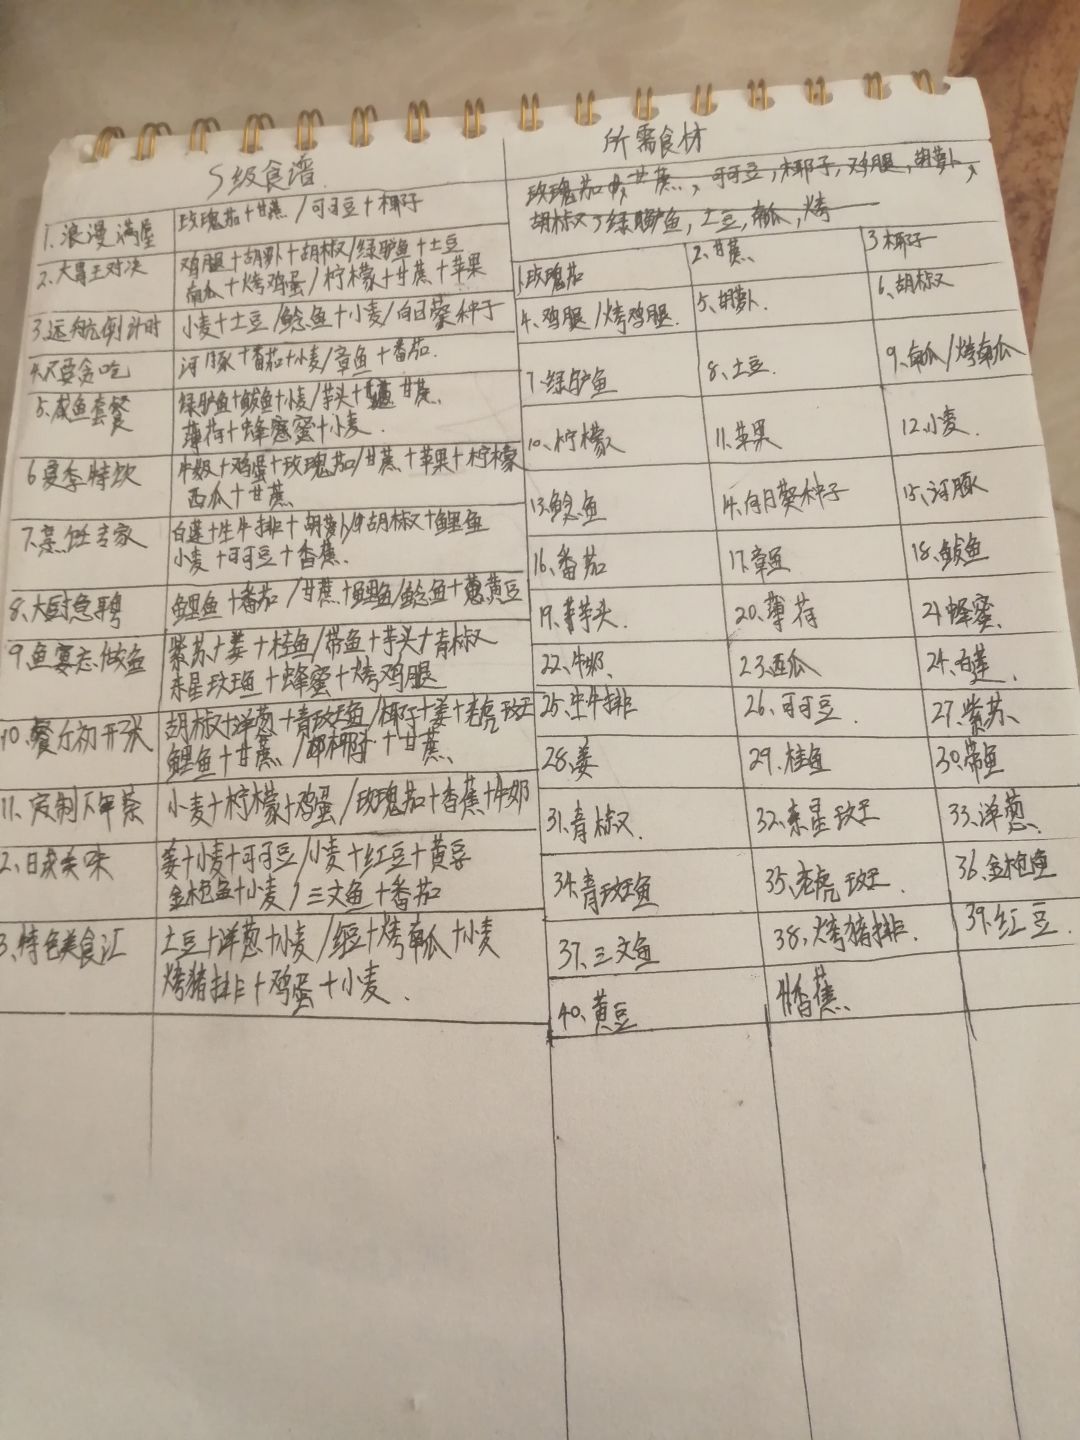 S级食谱
1.浪漫满屋
玫瑰茄+甘蔗/可可豆+椰子
2.大胃王对决
鸡腿+胡萝卜+胡椒/绿鲈鱼+土豆
南瓜+烤鸡蛋/柠檬+甘蔗+苹果
3.远航倒计时
小麦+土豆/鲶鱼+小麦/向日葵种子
4.只要贪吃
河豚+番茄+小麦/章鱼+番茄.
5.咸鱼套餐
绿鲈鱼+鲅鱼+小麦/芋头+甘蔗.
薄荷+蜂蜜+小麦.
6夏季特饮
牛奶+鸡蛋+玫瑰茄/甘蔗+苹果+柠檬
西瓜+甘蔗.
7.烹饪专家
白莲+生牛排+胡萝卜/胡椒+鲤鱼
小麦+可可豆+香蕉.
8.大厨急聘
鲤鱼+番茄/甘蔗+鲤鱼/鲶鱼+黄豆
9.鱼宴忘做鱼
紫苏+姜+桂鱼/带鱼+芋头+青椒
东星斑鱼+蜂蜜+烤鸡腿
10.餐厅初开张
胡椒+洋葱+青斑鱼/椰子+姜+老虎斑
鲤鱼+甘蔗/+甘蔗、
11.定制下午茶
小麦+柠檬+鸡蛋/玫瑰茄+香蕉+牛奶
2.日式美味
姜+小麦+可可豆/小麦+红豆+黄豆
金枪鱼+小麦/三文鱼+番茄
3.特色美食汇
土豆+洋葱+小麦/红豆+烤南瓜+小麦
烤猪排+鸡蛋+小麦.
所需食材
玫瑰茄,甘蔗,可可豆,椰子,鸡腿,胡萝卜,
胡椒,绿鲈鱼,土豆,南瓜,烤
1.玫瑰茄 2.甘蔗 3.椰子
4.鸡腿/烤鸡腿. 5.胡萝卜 6.胡椒
7.绿鲈鱼 8.土豆 9.南瓜/烤南瓜
10.柠檬 11.苹果 12.小麦.
13.鲶鱼 14.向日葵种子 15.河豚
16.番茄 17.章鱼 18.鲅鱼
19.芋头. 20.薄荷 21蜂蜜.
22.牛奶、 23.西瓜 24.白莲.
25.生牛排 26.可可豆. 27.紫苏、
28.姜 29.桂鱼 30.带鱼
31.青椒. 32.东星斑 33.洋葱.
34.青斑鱼 35.老虎斑. 36.金枪鱼
37.三文鱼 38.烤猪排. 39.红豆.
40.黄豆 41香蕉、